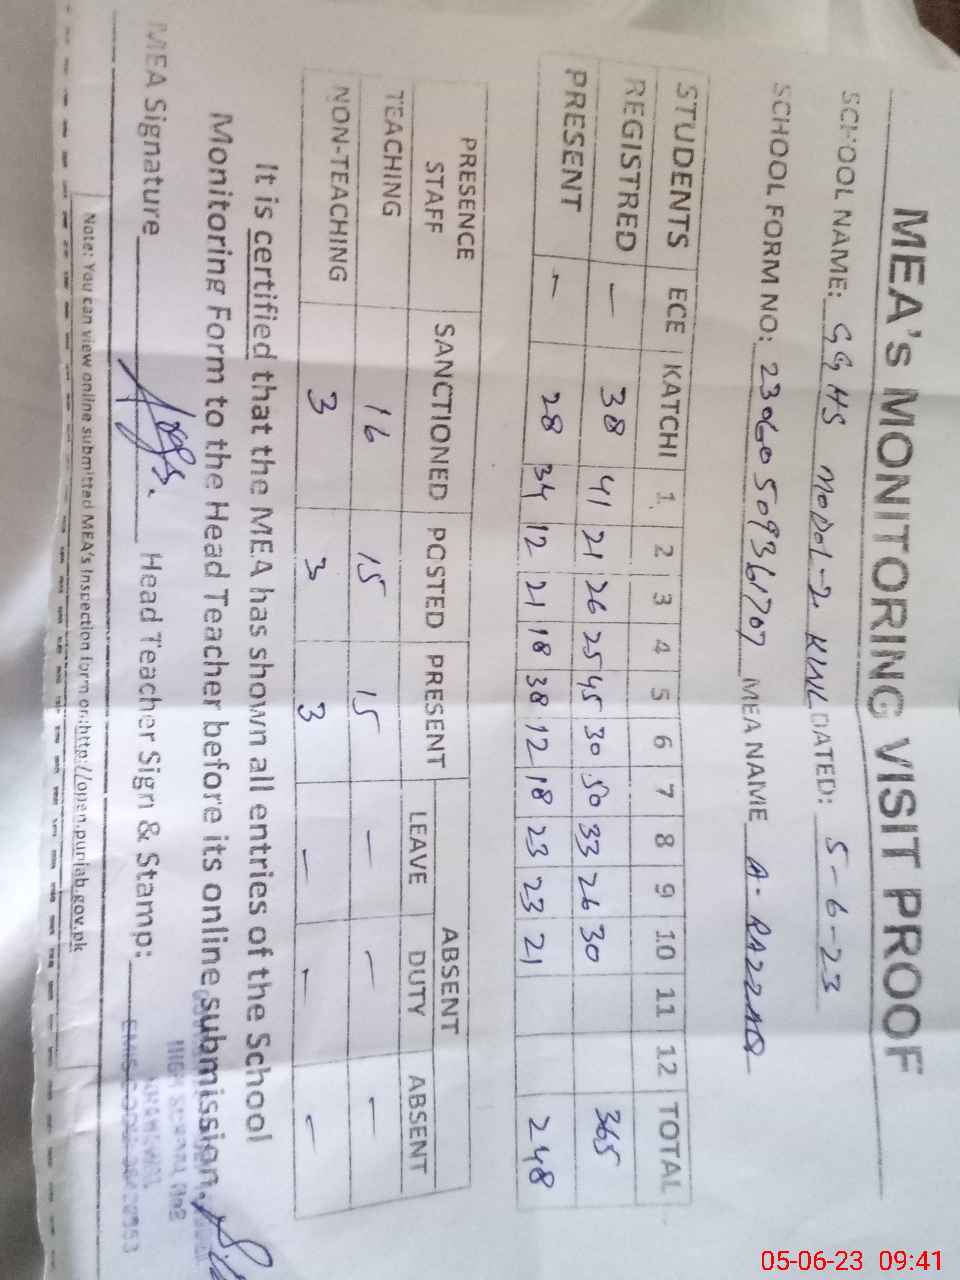 MEA's MONITORING VISIT PROOF
SCHOOL NAME: GGHS MODOL-2 KWL DATED: 5-6-23
SCHOOL FORM NO: MEA NAME A. RAZZAQ
STUDENTS ECE KATCHI 1 2 3 4 5 6 7 8 9 10 11 12 TOTAL
REGISTRED — 38 41 21 26 25 45 30 50 33 26 30 365
PRESENT — 28 34 12 21 18 38 12 18 23 23 21 248
PRESENCE STAFF SANCTIONED POSTED PRESENT ABSENT
LEAVE DUTY ABSENT
TEACHING 16 15 15 — — —
NON-TEACHING 3 3 3 — — —
It is certified that the MEA has shown all entries of the School
Monitoring Form to the Head Teacher before its online submission.
MEA Signature Head Teacher Sign & Stamp:
HIGH SCHOOL
Note: You can view online submitted MEA's Inspection form on:http://open.punjab.gov.pk
05-06-23 09:41